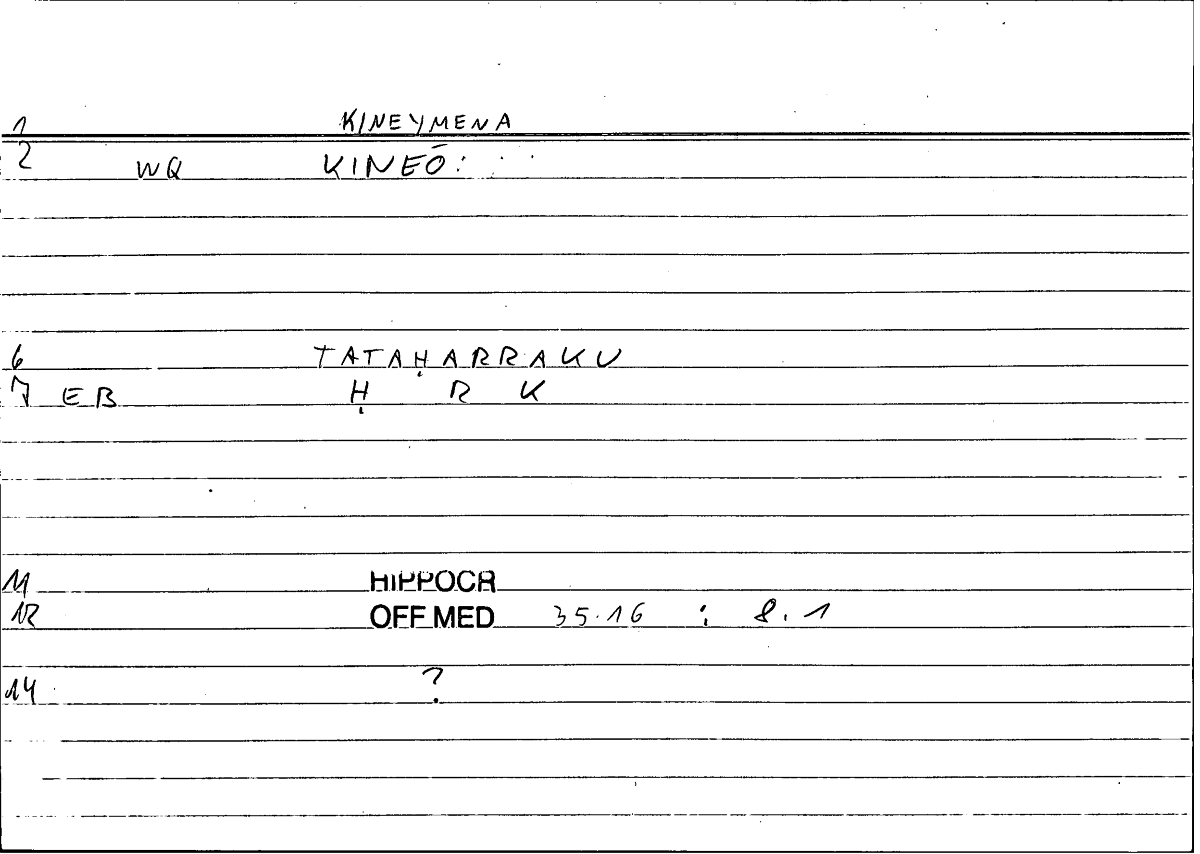 1 KINEYMENA
2 WQ KINEŌ:
6 TATAḤARRAKU
7 EB Ḥ R K
11 HIPPOCR
12 OFF MED 35.16 : 8.1
14 ?